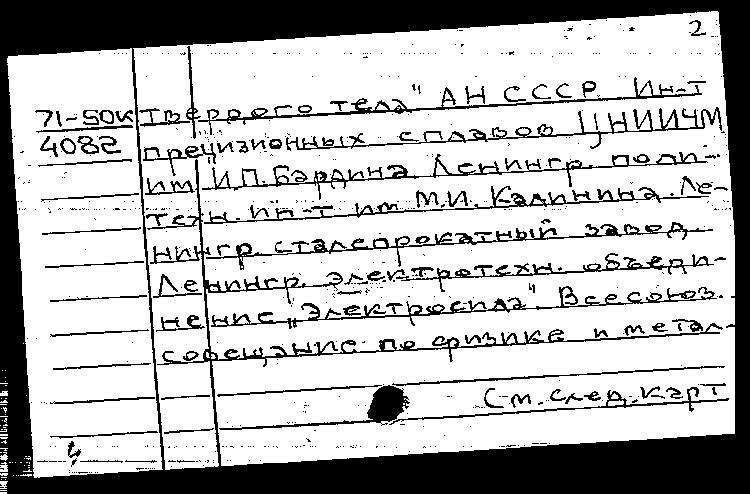 2
71-50к твердого тела" АН СССР. Ин-т
4082 прецизионных сплавов ЦНИИЧМ
им. И.П. Бардина. Ленингр. поли-
техн. ин-т им. М.И. Калинина. Ле-
нингр. сталепрокатный завод.
Ленингр. электротехн. объеди-
нение „Электросила". Всесоюз.
совещание по физике и метал-
См. след. карт